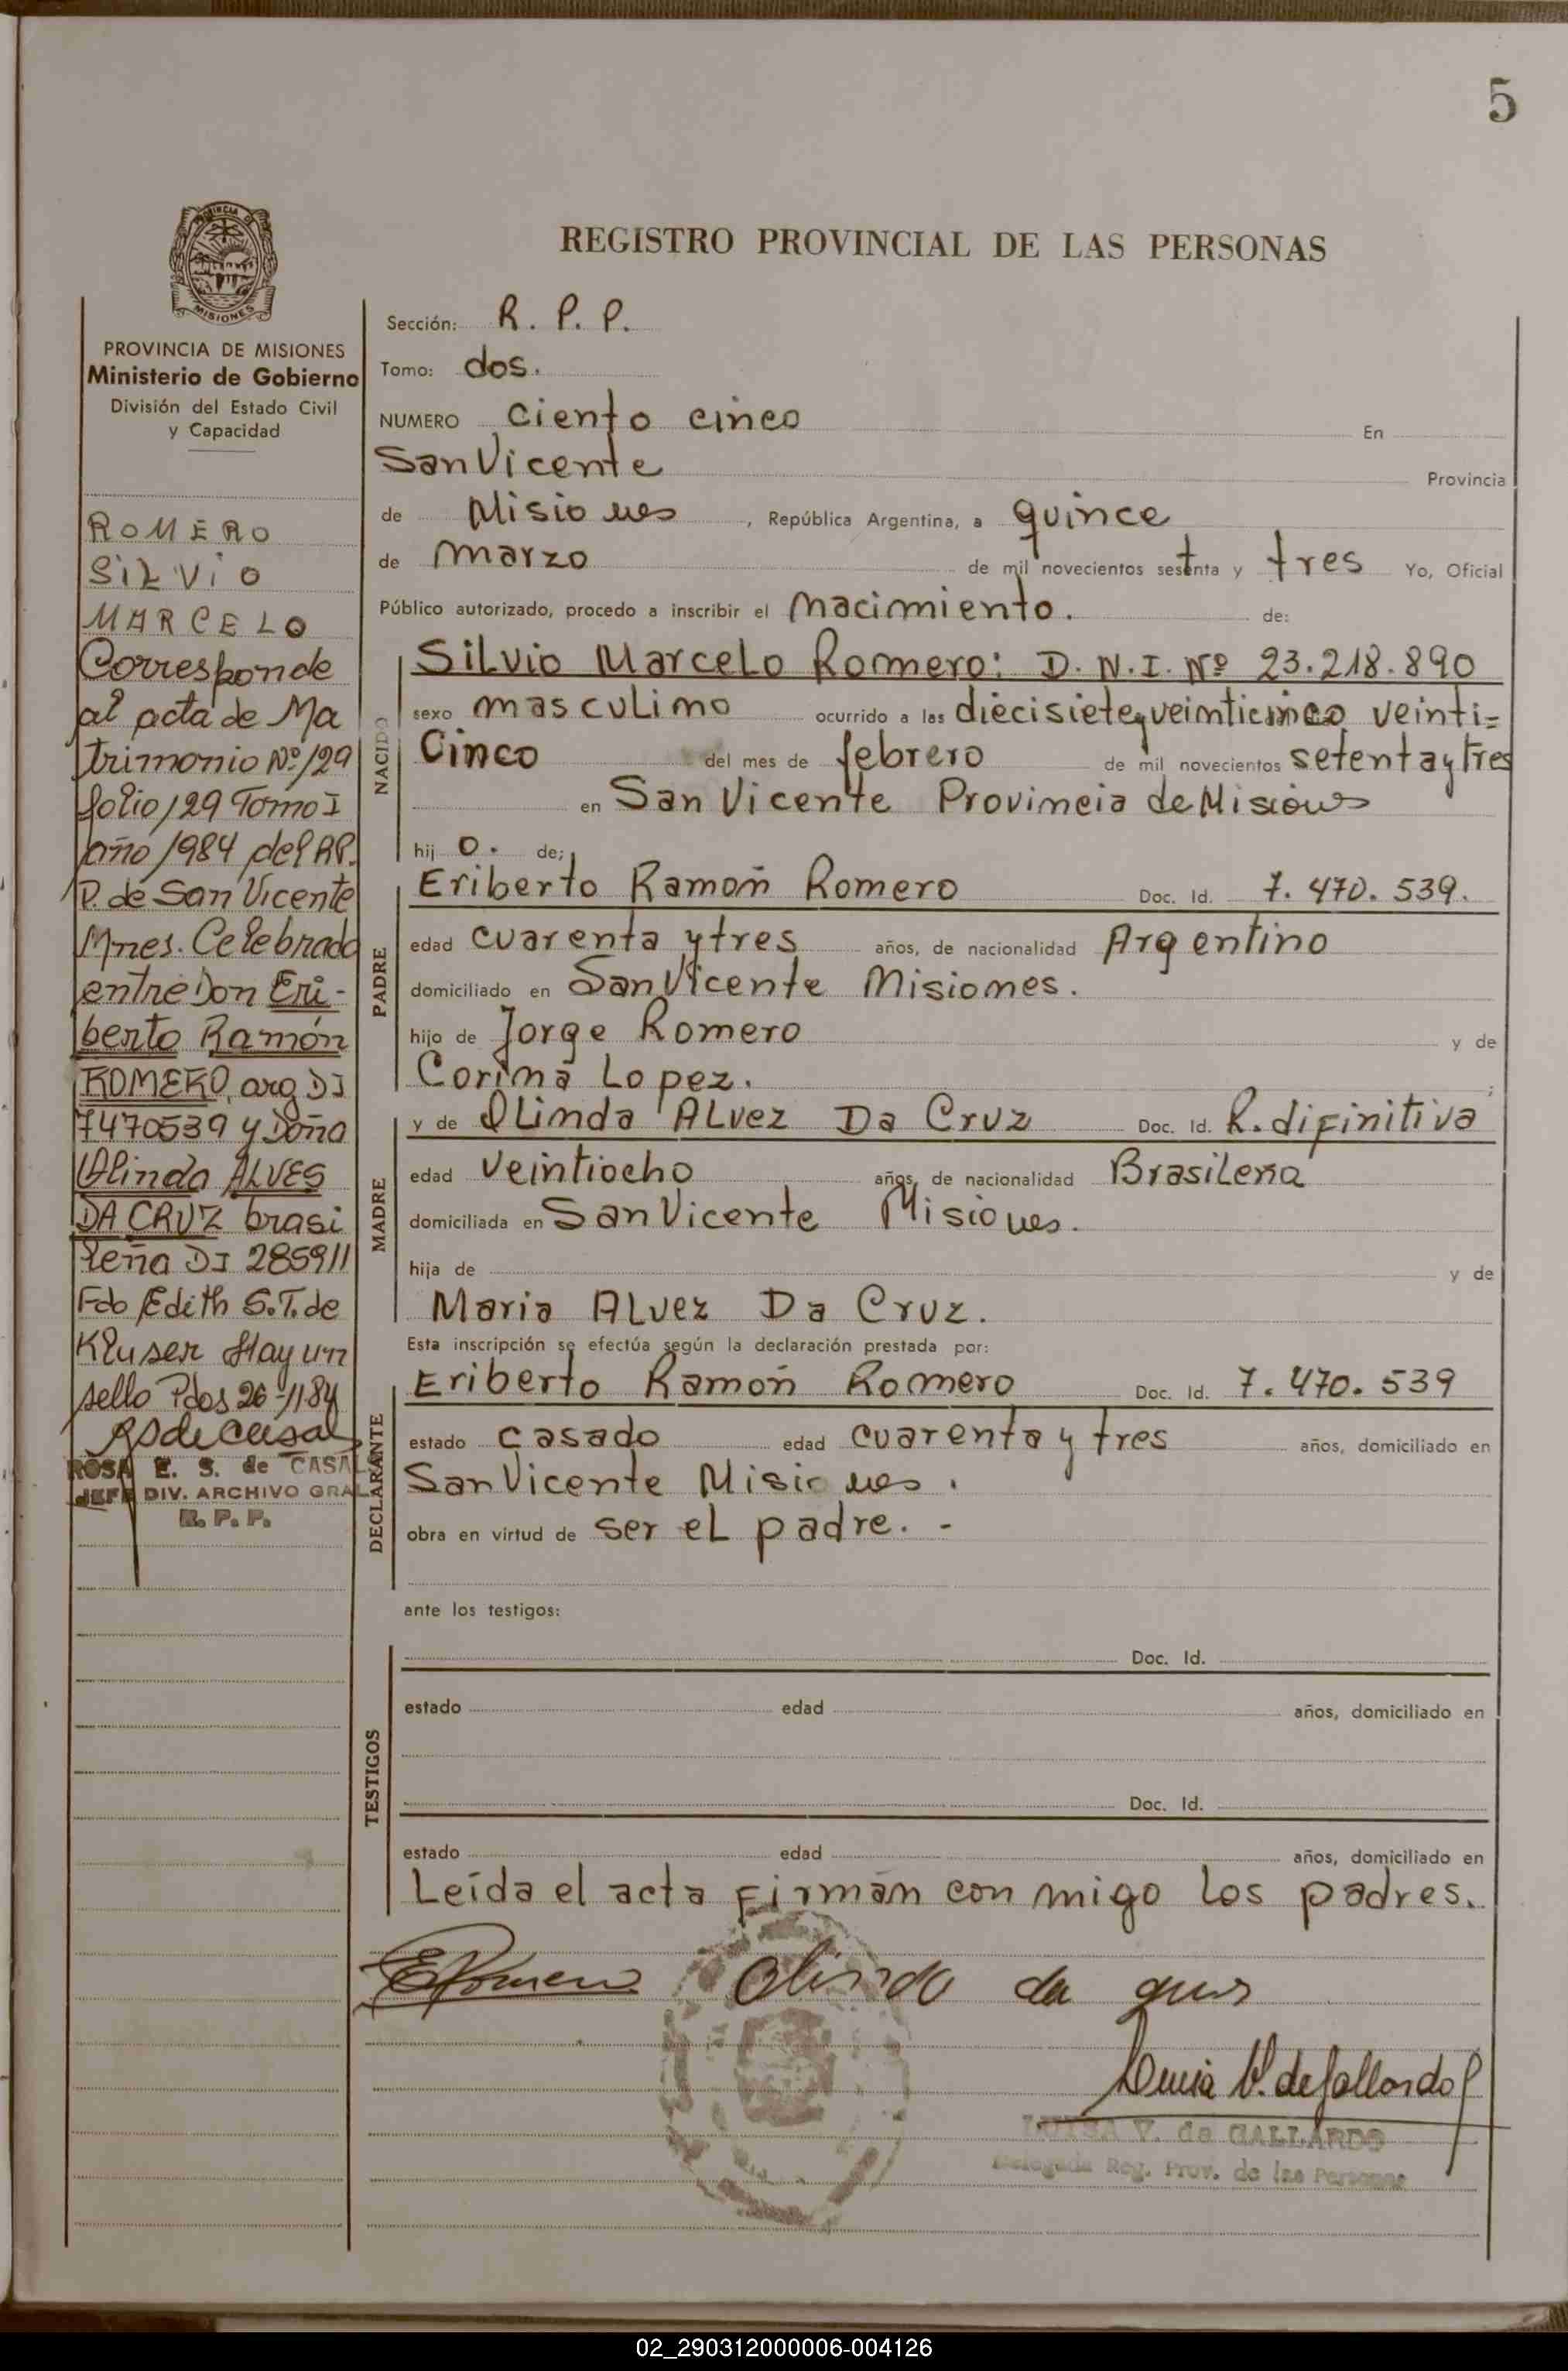 5
PROVINCIA DE
MISIONES
REGISTRO PROVINCIAL DE LAS PERSONAS
PROVINCIA DE MISIONES
Ministerio de Gobierno
División del Estado Civil
y Capacidad
ROMERO
SiLViO
MARCELO
Corresponde
al acta de Ma
trimonio Nº 129
folio 129 Tomo I
año 1984 del RP.
P. de San Vicente
Mnes. Celebrado
entre Don Eri-
berto Ramón
ROMERO, arg DI
7470539 y Doña
Olinda ALVES
DA CRUZ brasi
leña DI 285911
Fdo Edith S.T. de
Kluser Hay un
sello Pdos 26-11-84
ROSA E. S. de CASAL
JEFE DIV. ARCHIVO GRAL
R. P. P.
Sección: R. P. P.
Tomo: dos.
NUMERO Ciento cinco En
San Vicente Provincia
de Misiones, República Argentina, a quince
de marzo de mil novecientos setenta y tres Yo, Oficial
Público autorizado, procedo a inscribir el nacimiento. de:
NACIDO
Silvio Marcelo Romero: D.N.I. Nº 23.218.890
sexo masculino ocurrido a las diecisiete y veinticinco veinti=
Cinco del mes de febrero de mil novecientos setenta y tres
en San Vicente Provincia de Misiones
hij o. de;
PADRE
Eriberto Ramón Romero Doc. Id. 7.470.539.
edad cuarenta y tres años, de nacionalidad Argentino
domiciliado en San Vicente Misiones.
hijo de Jorge Romero y de
Corina Lopez.
MADRE
y de Olinda Alvez Da Cruz Doc. Id. R. difinitiva
edad veintiocho años, de nacionalidad Brasileña
domiciliada en San Vicente Misiones.
hija de y de
Maria Alvez Da Cruz.
Esta inscripción se efectúa según la declaración prestada por:
DECLARANTE
Eriberto Ramón Romero Doc. Id. 7.470.539
estado casado edad cuarenta y tres años, domiciliado en
San Vicente Misiones.
obra en virtud de ser el padre. -
ante los testigos:
TESTIGOS
Doc. Id.
estado edad años, domiciliado en
Doc. Id.
estado edad años, domiciliado en
Leída el acta firman con migo los padres.
ERomero Olinda da
Luisa V. de Gallardo
LUISA V. de GALLARDO
Delegada Reg. Prov. de las Personas
02_290312000006-004126